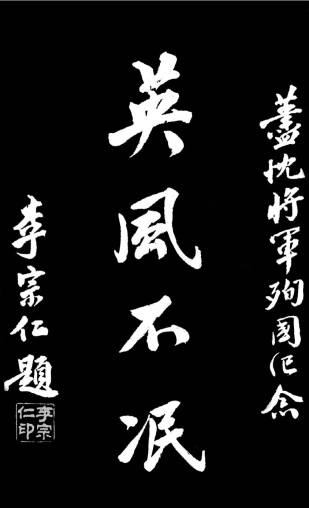 藎忱將軍殉國紀念
英風不泯
李宗仁題
李宗仁印